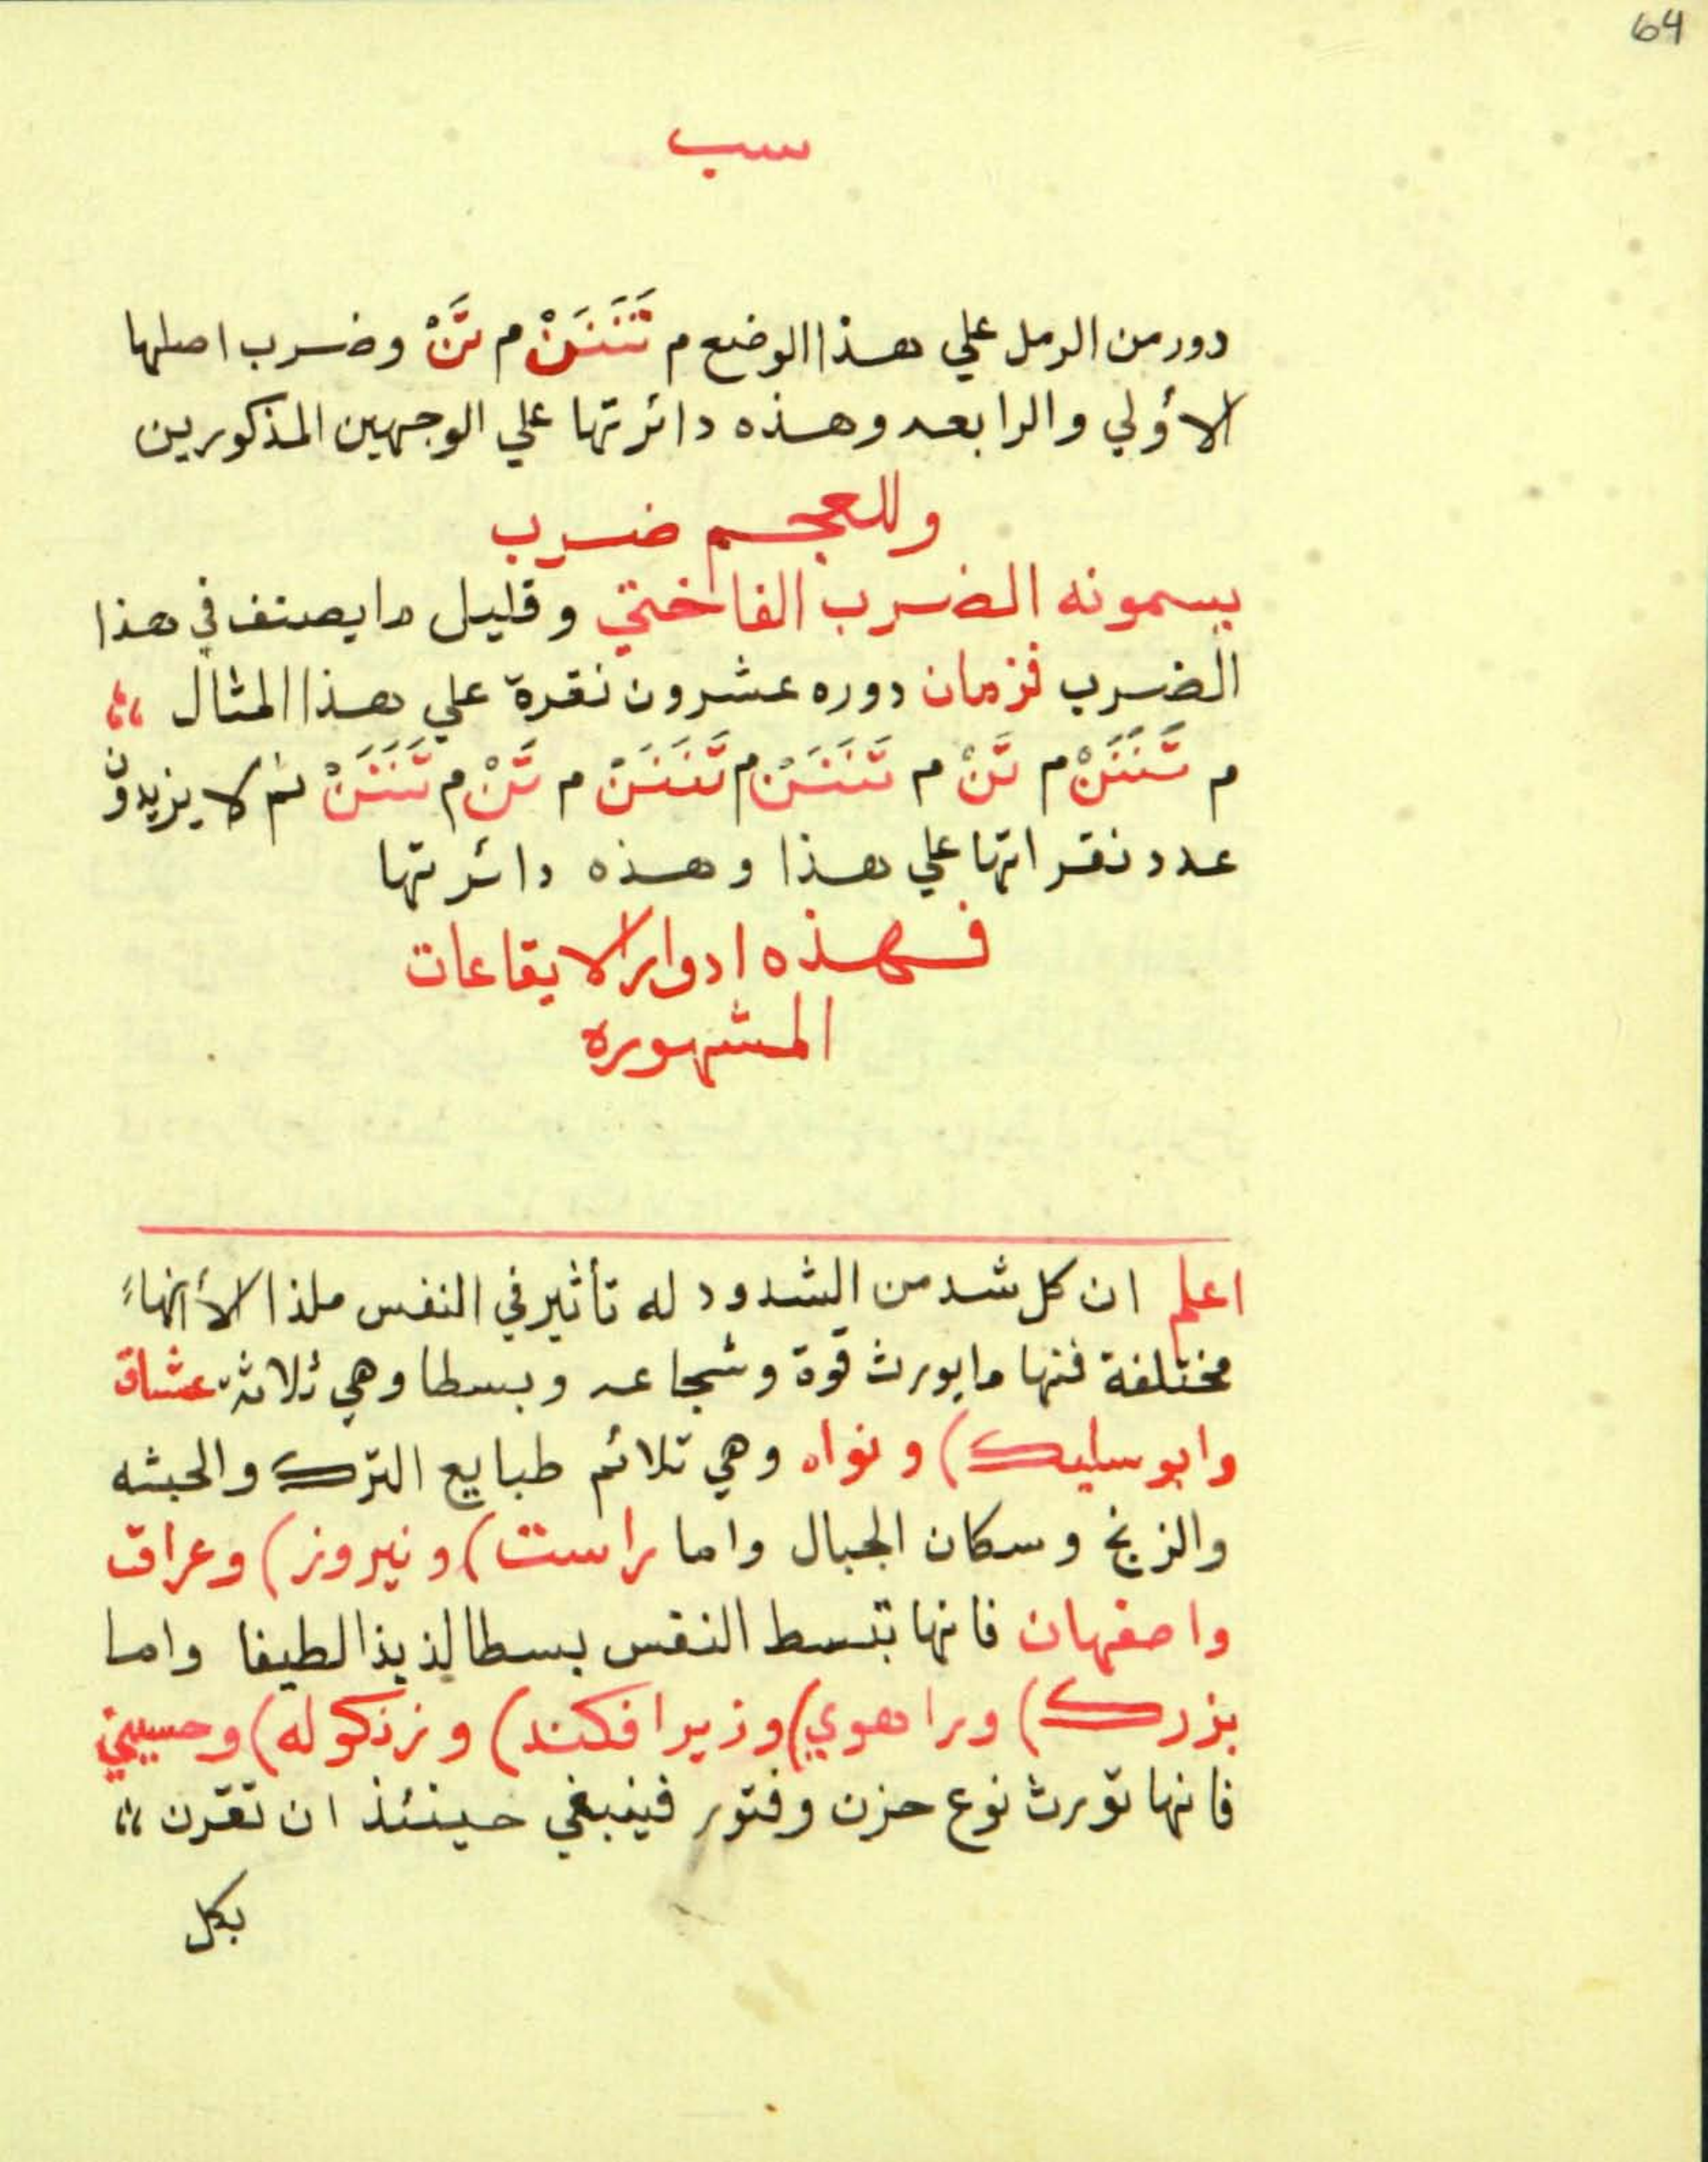 64
سب
دور من الرمل علي هذا الوضع م تَنَنَنْ م تَنْ وضرب اصلها
الأولي والرابعه وهذه دائرتها علي الوجهين المذكورين
وللعجم ضرب
يسمونه الضرب الفاختي وقليل ما يصنف في هذا
الضرب فزمان دوره عشرون نقرة علي هذا المثال ،،
م تَنَنَنْ م تَنْ م تَنَنَنْ م تَنَنَنْ م تَنْ م تَنَنَنْ ثم لا يزيدون
عدد نقراتها علي هذا وهذه دائرتها
فهذه ادوار الايقاعات
المشهوره
اعلم ان كل شد من الشدود له تأثير في النفس ملذا لأنها
مختلفة فمنها ما يورث قوة وشجاعه وبسطا وهي ثلاثة عشاق
وابوسليك) و نواه وهي تلائم طبايع الترك والحبشه
والزنج وسكان الجبال واما راست) ونيروز) وعراق
واصفهان فانها تبسط النفس بسطا لذيذا لطيفا واما
بزرك) وراهوي) وزيرافكند) و زنكوله) وحسيني
فانها تورث نوع حزن وفتور فينبغي حينئذ ان تقرن ،،
بكل